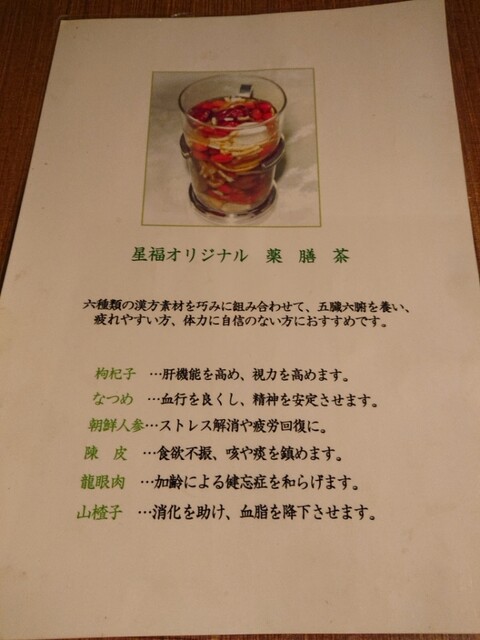 星福オリジナル 薬 膳 茶
六種類の漢方素材を巧みに組み合わせて、五臓六腑を養い、
疲れやすい方、体力に自信のない方におすすめです。
枸杞子 …肝機能を高め、視力を高めます。
なつめ …血行を良くし、精神を安定させます。
朝鮮人参…ストレス解消や疲労回復に。
陳 皮 …食欲不振、咳や痰を鎮めます。
龍眼肉 …加齢による健忘症を和らげます。
山楂子 …消化を助け、血脂を降下させます。